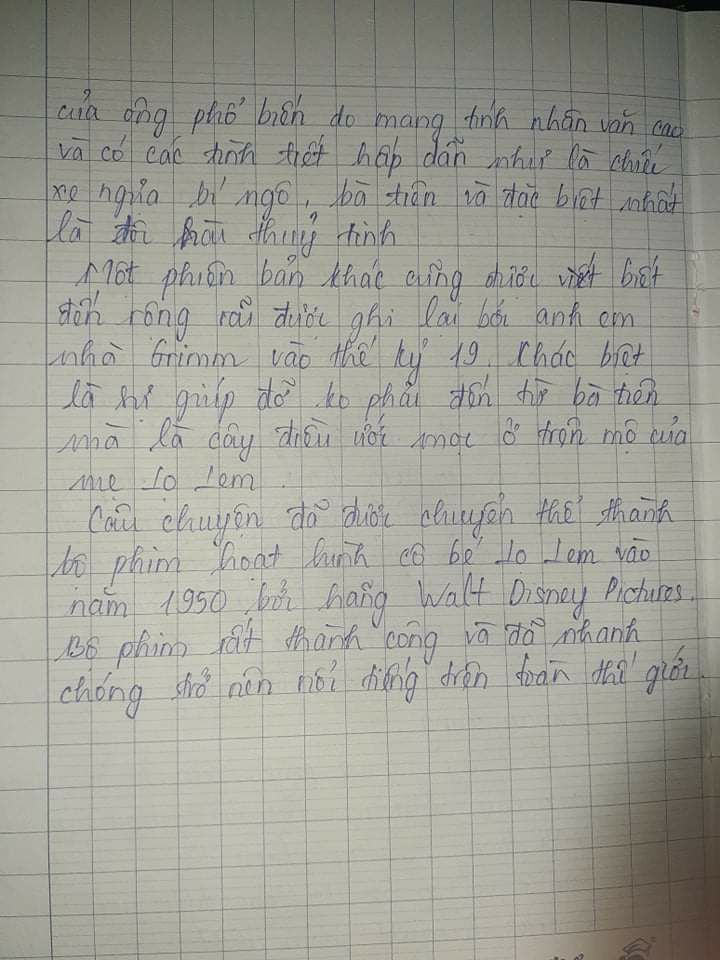 của ông phổ biến do mang tính nhân văn cao
và có các tình tiết hấp dẫn như là chiếc
xe ngựa bí ngô, bà tiên và đặc biệt nhất
là đôi hài thuỷ tinh
Một phiên bản khác cũng được biết
đến rộng rãi được ghi lại bởi anh em
nhà Grimm vào thế kỷ 19. Khác biệt
là sự giúp đỡ ko phải đến từ bà tiên
mà là cây điều ước mọc ở trên mộ của
mẹ Lọ Lem.
Câu chuyện đã được chuyển thể thành
bộ phim hoạt hình cô bé Lọ Lem vào
năm 1950 bởi hãng Walt Disney Pictures.
Bộ phim rất thành công và đã nhanh
chóng trở nên nổi tiếng trên toàn thế giới.